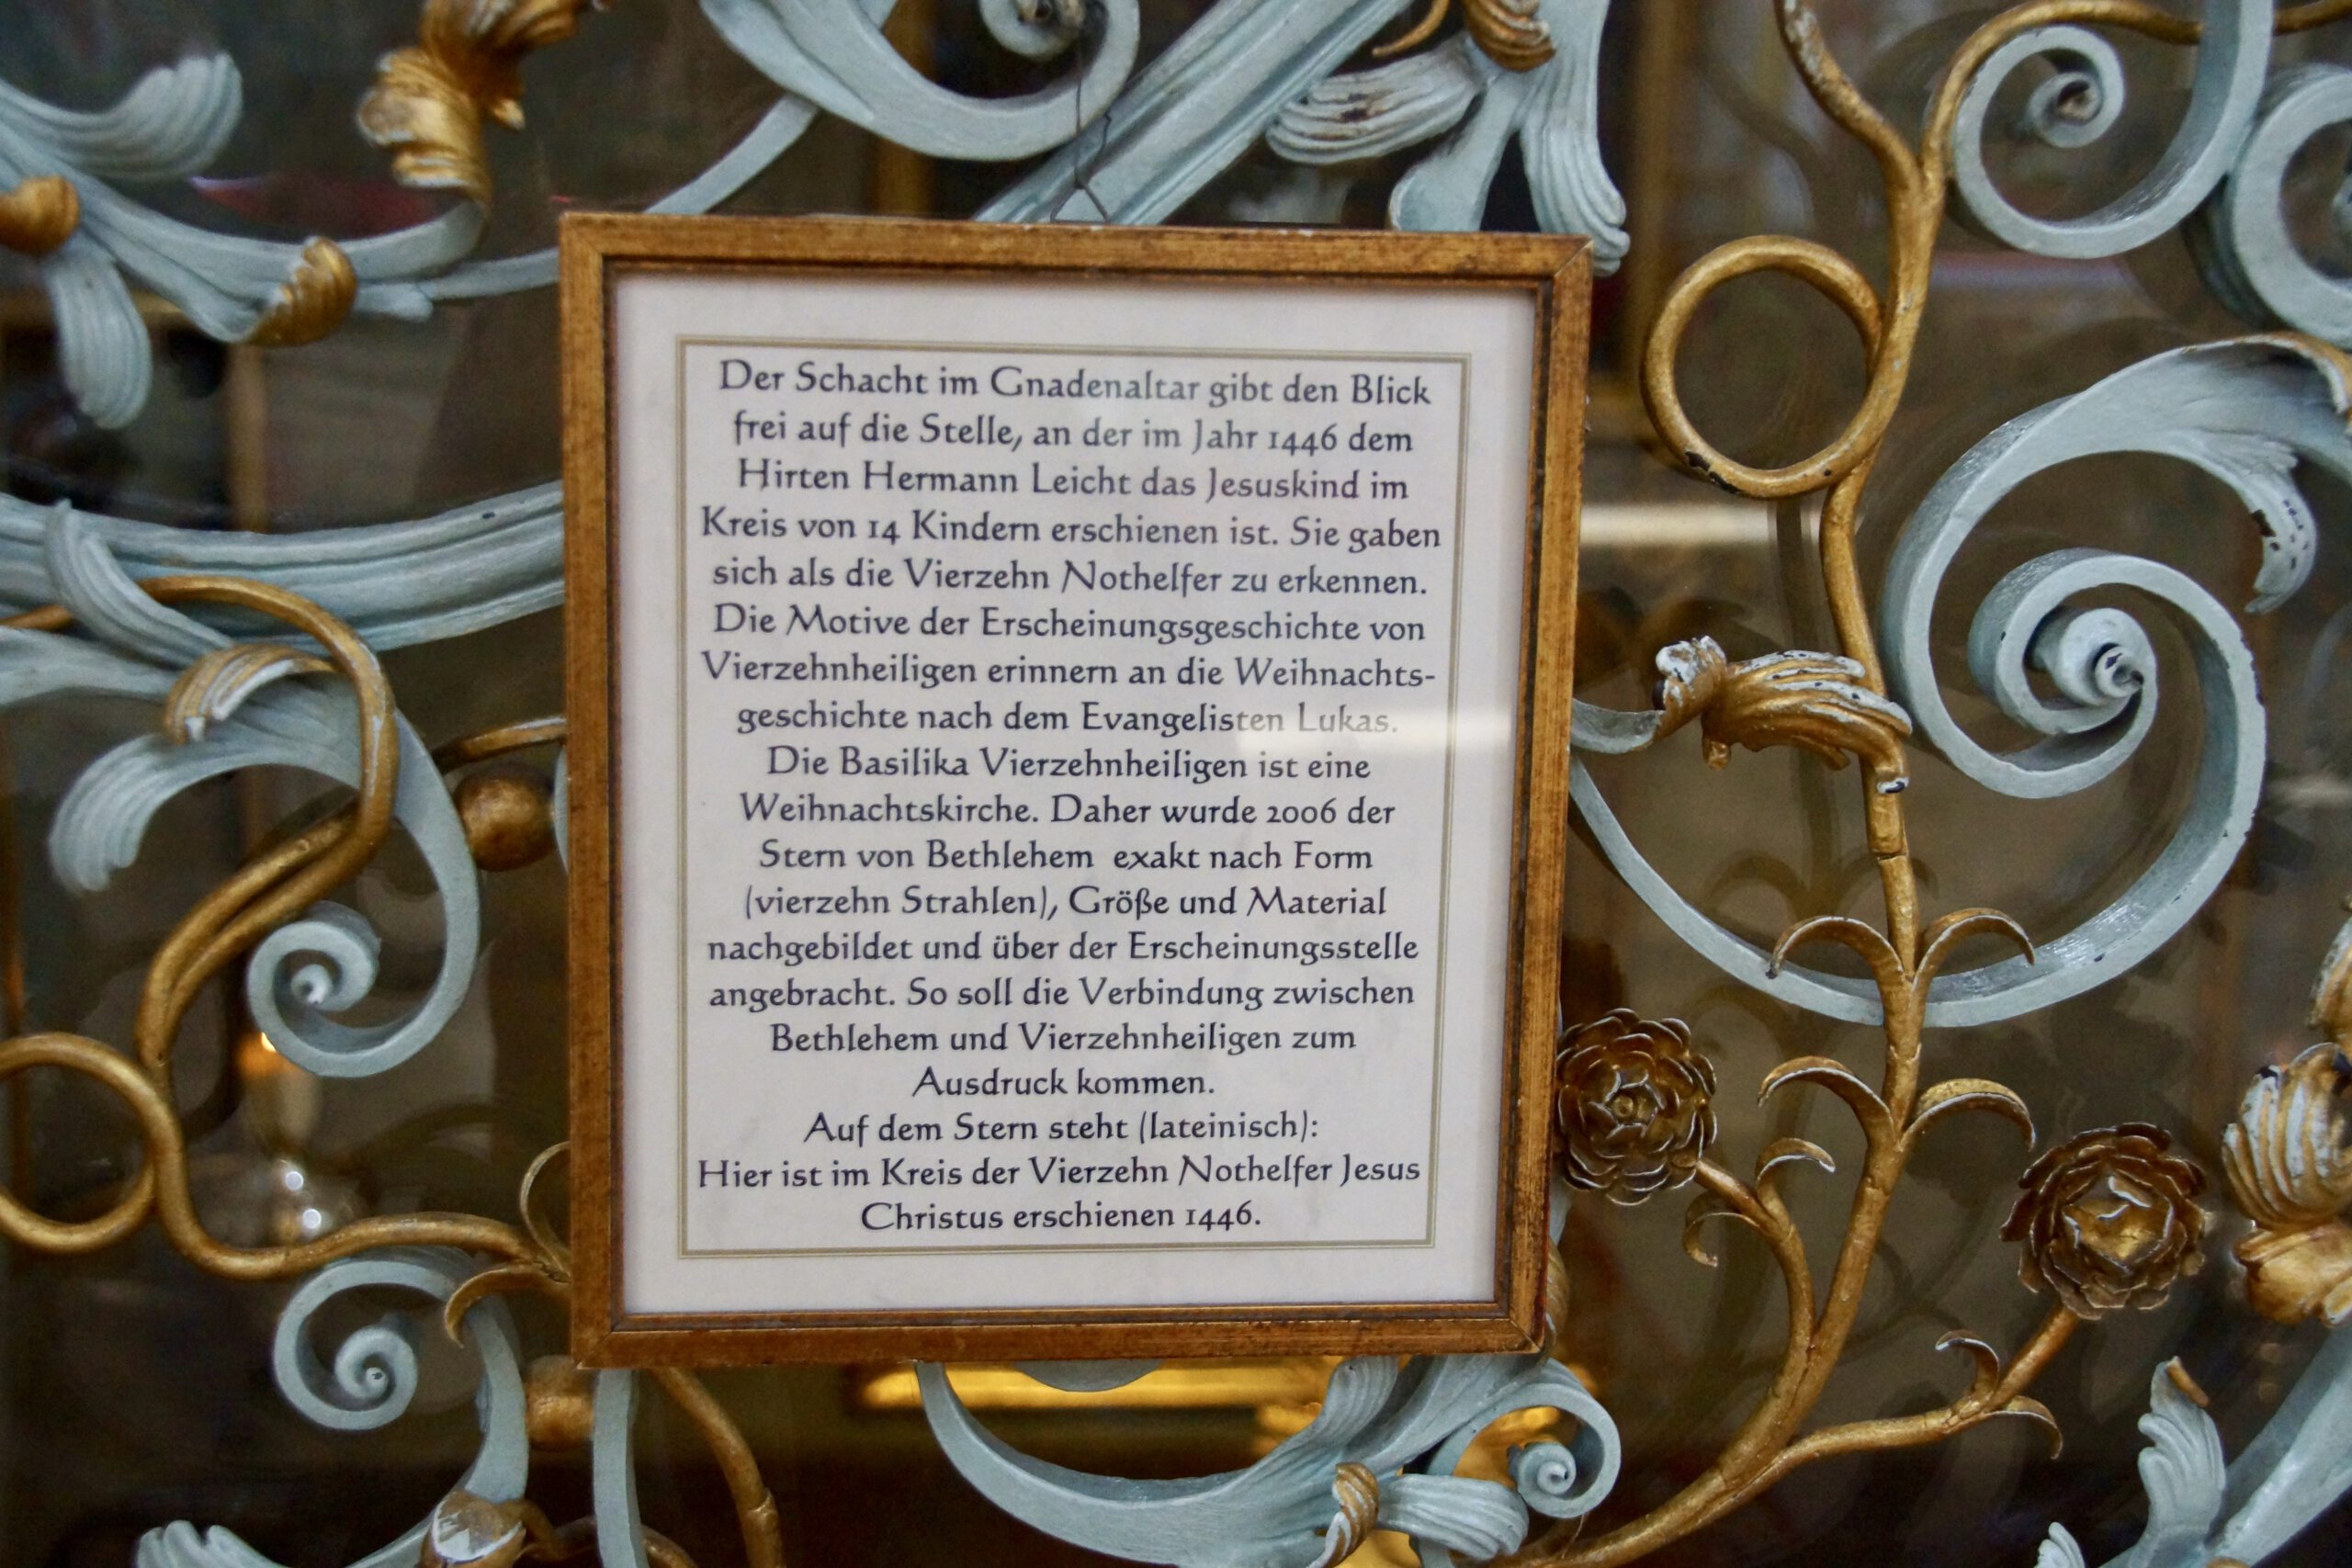 Der Schacht im Gnadenaltar gibt den Blick
frei auf die Stelle, an der im Jahr 1446 dem
Hirten Hermann Leicht das Jesuskind im
Kreis von 14 Kindern erschienen ist. Sie gaben
sich als die Vierzehn Nothelfer zu erkennen.
Die Motive der Erscheinungsgeschichte von
Vierzehnheiligen erinnern an die Weihnachts-
geschichte nach dem Evangelisten Lukas.
Die Basilika Vierzehnheiligen ist eine
Weihnachtskirche. Daher wurde 2006 der
Stern von Bethlehem exakt nach Form
(vierzehn Strahlen), Größe und Material
nachgebildet und über der Erscheinungsstelle
angebracht. So soll die Verbindung zwischen
Bethlehem und Vierzehnheiligen zum
Ausdruck kommen.
Auf dem Stern steht (lateinisch):
Hier ist im Kreis der Vierzehn Nothelfer Jesus
Christus erschienen 1446.